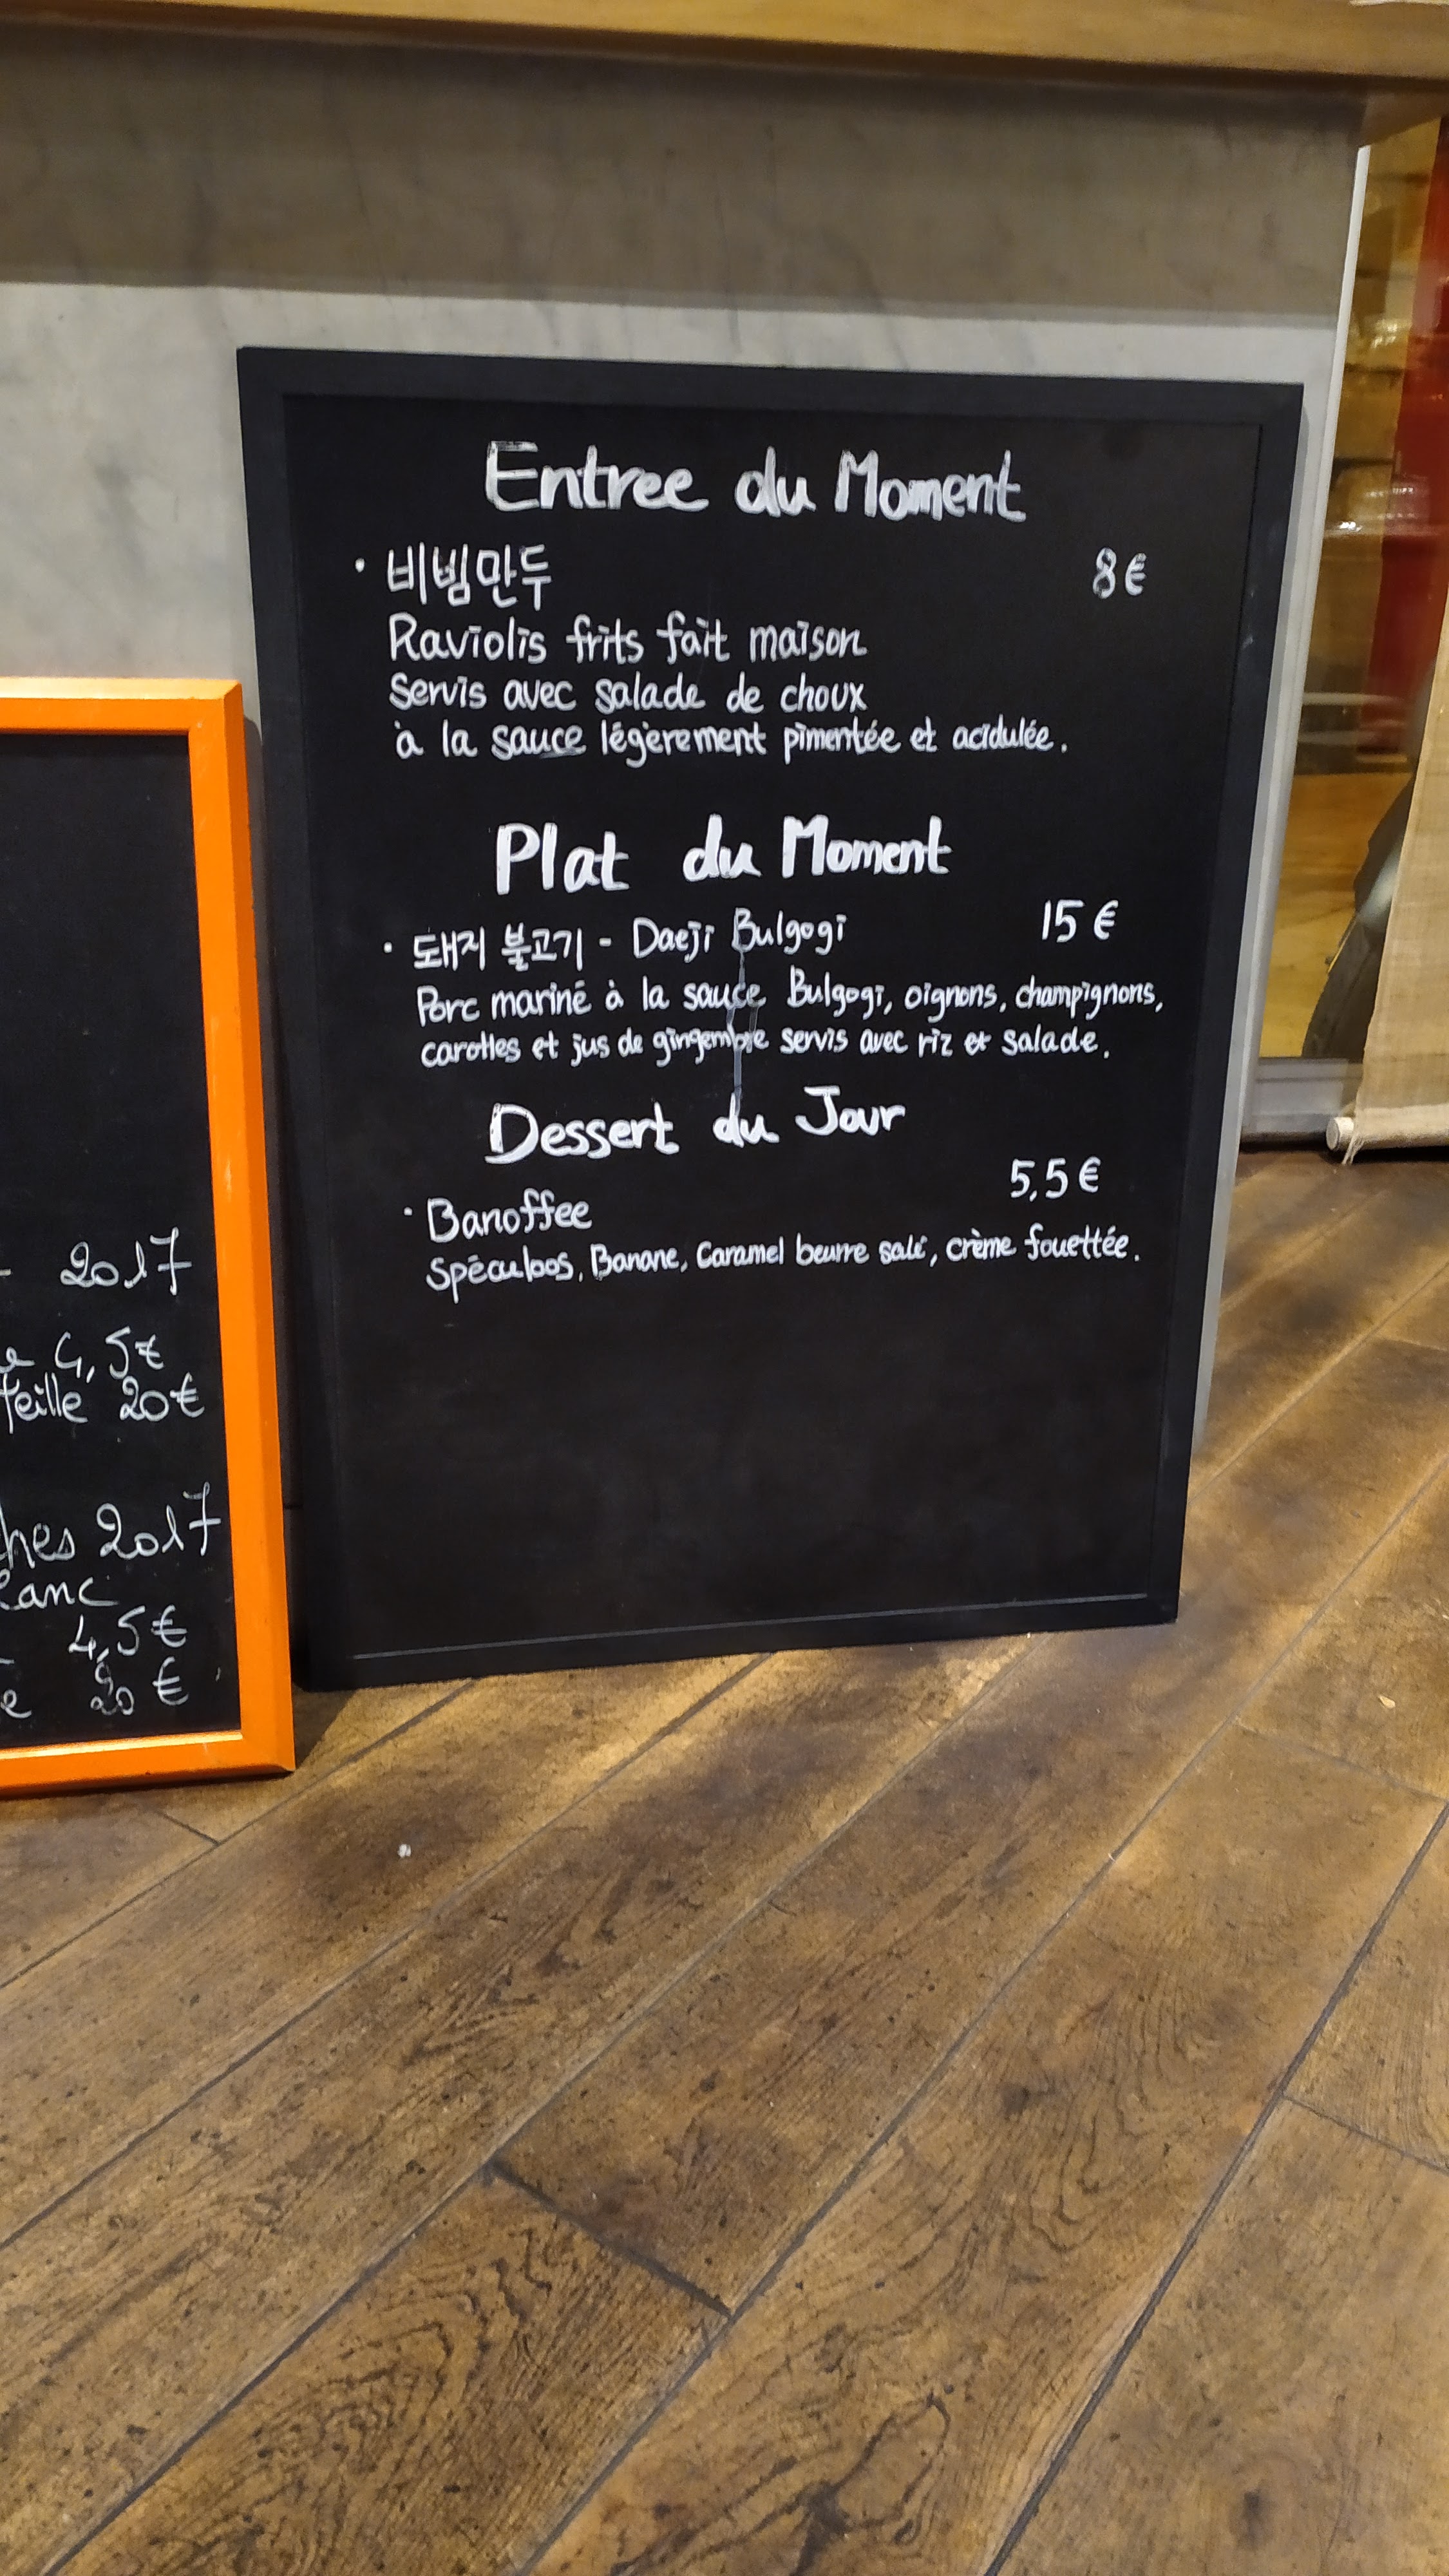 Entree du Moment
· 비빔만두 8€
Raviolis frits fait maison
Servis avec salade de choux
à la sauce légèrement pimentée et acidulée.
Plat du Moment
· 돼지 불고기 - Daeji Bulgogi 15€
Porc mariné à la sauce Bulgogi, oignons, champignons,
carottes et jus de gingembre servis avec riz et salade.
Dessert du Jour
5,5€
· Banoffee
Spéculoos, Banane, Caramel beurre salé, crème fouettée.
2017
4,5€
20€
2017
4,5€
20€